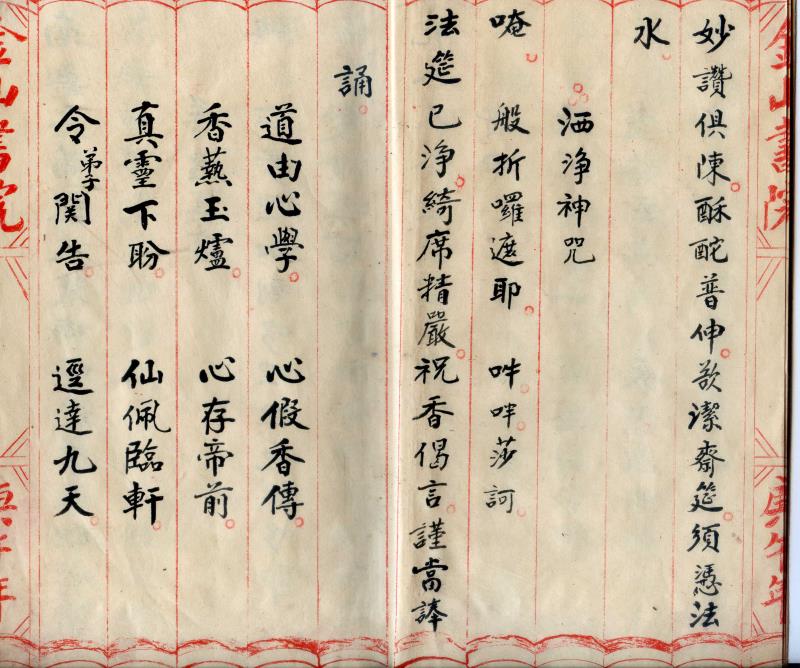 金山書院
庚午年
妙讚俱陳酥酡普伸欲潔齋筵須憑法
水
洒淨神咒
唵 般折囉遮耶 吽吽莎訶
法筵已淨綺席精嚴祝香偈言謹當
誦
道由心學 心假香傳
香爇玉爐 心存帝前
真靈下盼 仙佩臨軒
令弟子関告 逕達九天
金山書院
庚午年